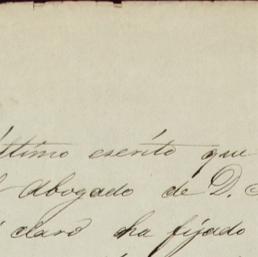 último escrito que
Abogado de D.
claro ha fijado